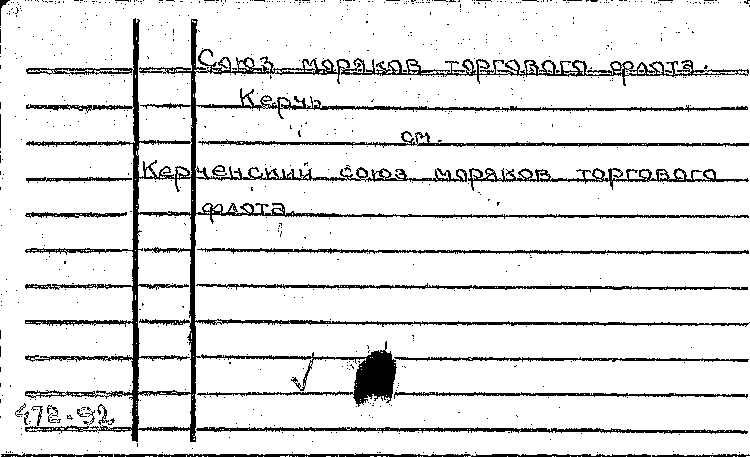 Союз моряков торгового флота.
Керчь
см.
Керченский союз моряков торгового
флота
472-92